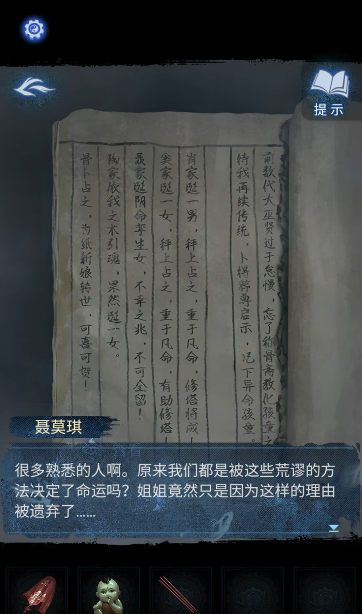 提示
前数代大巫贤过于怠慢，忘了称骨斋教化孩童之
待我再续传统，卜棋牌尊启示，记下异命孩童。
肖家诞一男，秤上占之，重于凡命，修塔将成！
奕家诞一女，秤上占之，重于凡命，有助修塔！
聂家诞阴命孪生女，不幸之兆，不可全留！
陶家依我之术引魂，果然诞一女。
骨卜占之，为纸新娘转世，可喜可贺！
聂莫琪
很多熟悉的人啊。原来我们都是被这些荒谬的方
法决定了命运吗？姐姐竟然只是因为这样的理由
被遗弃了……